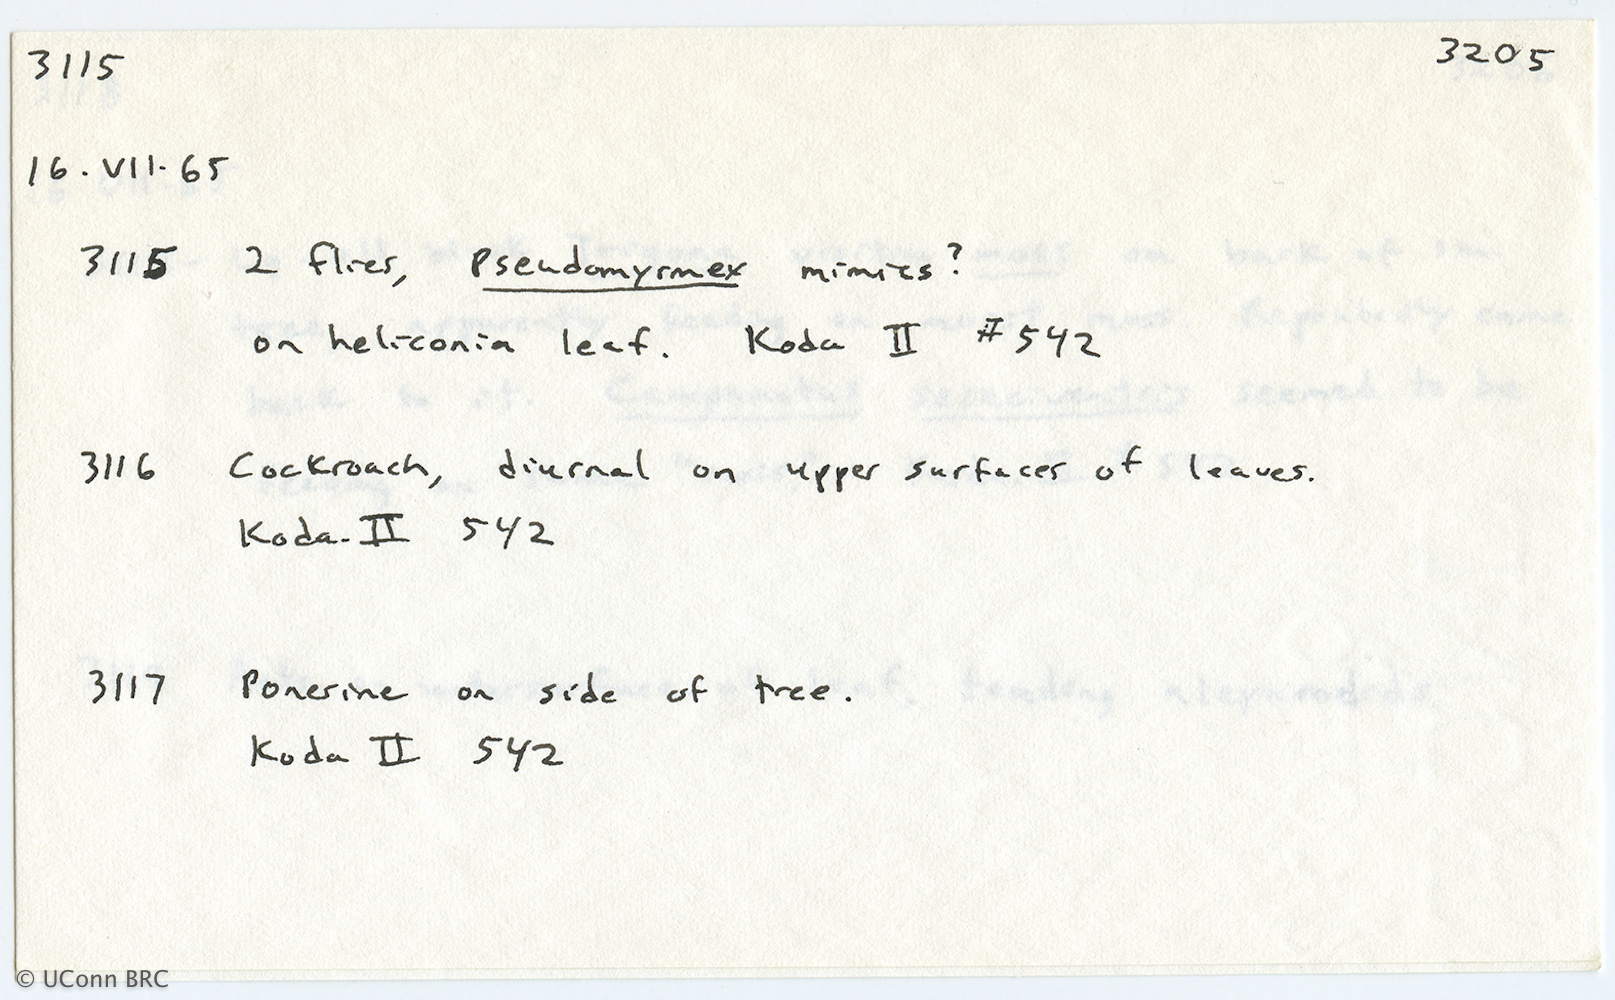 3115 3205
16.VII-65
3115 2 flies, Pseudomyrmex mimics?
on heliconia leaf. Koda II #542
3116 Cockroach, diurnal on upper surfaces of leaves.
Koda-II 542
3117 Ponerine on side of tree.
Koda II 542
© UConn BRC